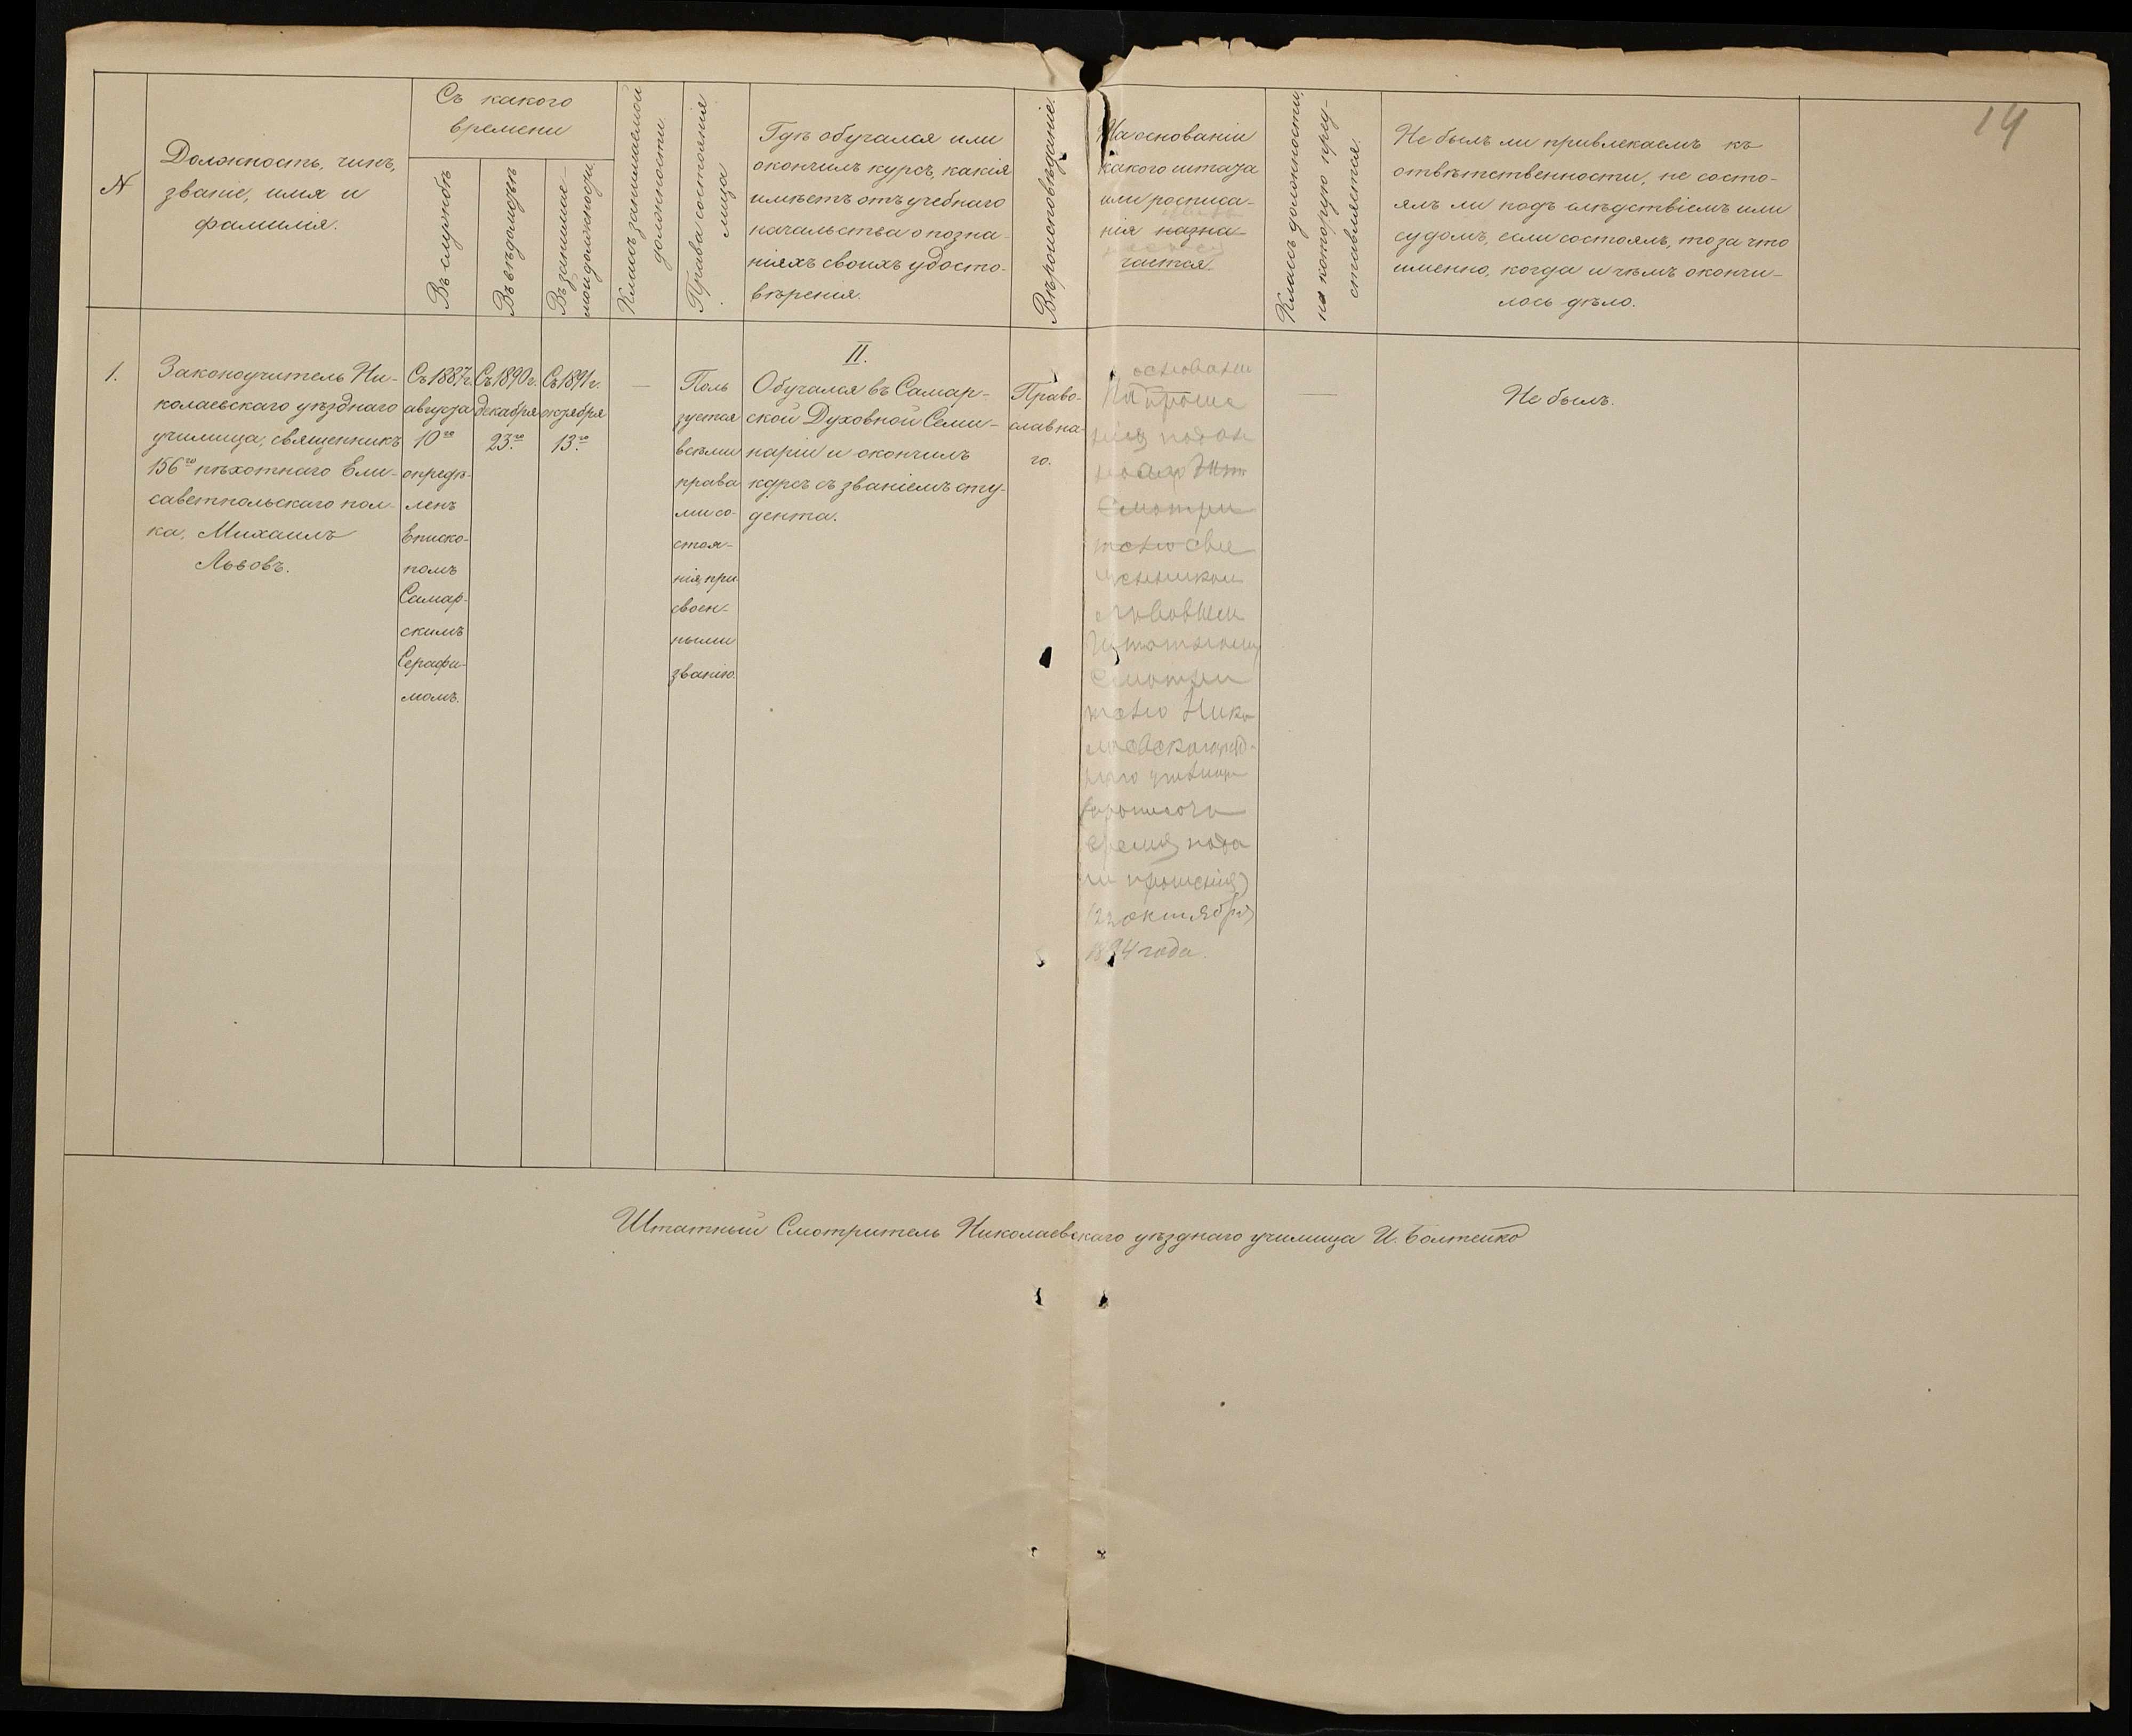 14
№
Должность, чинъ,
званіе, имя и
фамилія.
Съ какого
времени
Въ службѣ
Въ вѣдомствѣ
Въ занимае-
мой должности.
Классъ занимаемой
должности.
Права состоянія
лица
Гдѣ обучался или
окончилъ курсъ, какія
имѣетъ отъ учебнаго
начальства о позна-
ніяхъ своихъ удосто-
вѣренія.
Вѣроисповѣданіе.
На основаніи
какого штата
или росписа-
нія назна-
чается.
Классъ должности,
на которую пред-
ставляется.
Не былъ ли привлекаемъ къ
отвѣтственности, не состо-
ялъ ли подъ слѣдствіемъ или
судомъ, если состоялъ, то за что
именно, когда и чѣмъ окончи-
лось дѣло.
1.
Законоучитель Ни-
колаевскаго уѣзднаго
училища, священникъ
156го пѣхотнаго Ели-
саветпольскаго пол-
ка, Михаилъ
Львовъ.
Съ 1887 г.
августа
10го
опредѣ-
ленъ
Еписко-
помъ
Самар-
скимъ
Серафи-
момъ.
Съ 1890 г.
декабря
23го
Съ 1891 г.
октября
13го
—
Поль
зуется
всѣми
права
ми со-
стоя-
нія, при
своен-
ными
званію.
II.
Обучался въ Самар-
ской Духовной Семи-
наріи и окончилъ
курсъ съ званіемъ сту-
дента.
Право-
славна-
го.
основаніи
проше
нія
Смотри
телю свя
щенникомъ
Львовымъ
Штатному
Смотри
телю Нико
лаевскаго уѣзд-
наго училищ
время пода
чи прошенія)
22 октября
1894 года.
—
Не былъ.
Штатный Смотритель Николаевскаго уѣзднаго училища И. Болтенко